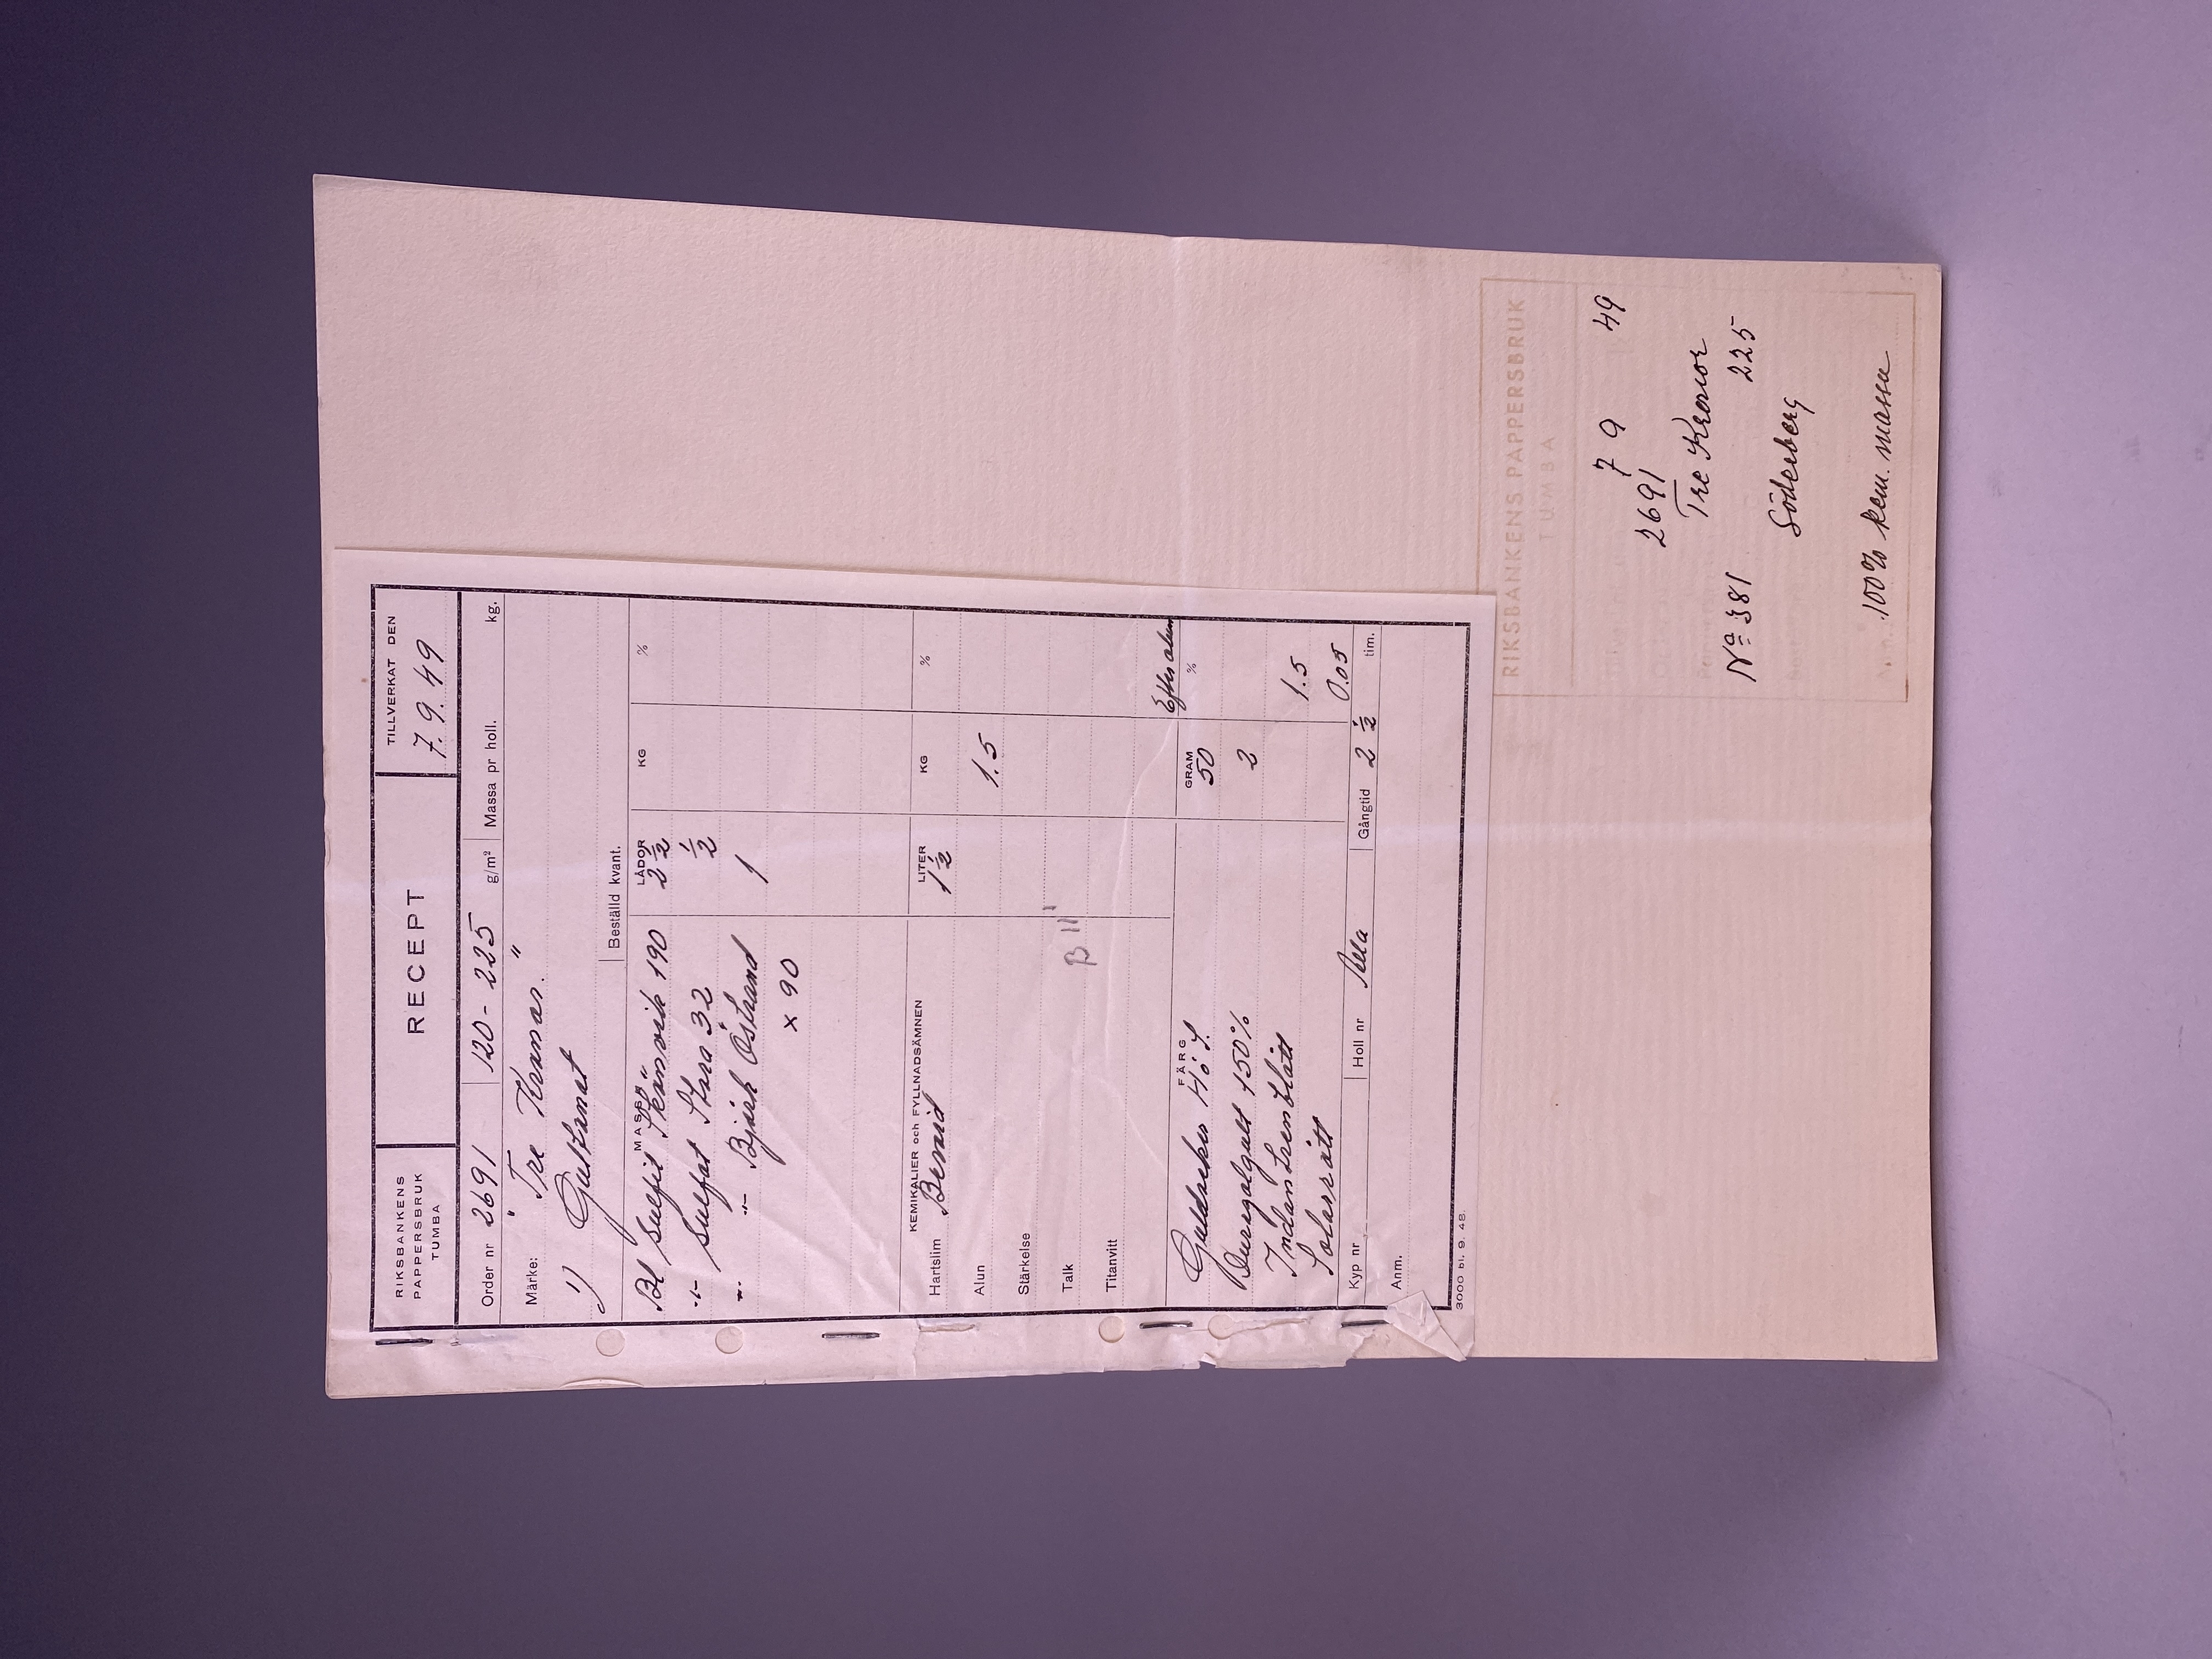 RIKSBANKENS
PAPPERSBRUK
TUMBA
RECEPT
TILLVERKAT DEN
7. 9. 49
Order nr 2691 120 - 225 g/m² Massa pr holl. kg.
Märke: "Tre Kronor."
1) Gultonat
Beställd kvant.
MASSA LÅDOR KG %
Bl sulfit Skönvik 190 2 ½
-"- sulfat Stora 32 ½
-"- -"- Björk Östrand 1
x 90
KEMIKALIER och FYLLNADSÄMNEN LITER KG %
Hartslim Bevoid 1 ½
Alun 1.5
Stärkelse
Talk
Titanvitt
Efter alun
FÄRG GRAM %
50
3
Indanthrenblått 1.5
Solarrött 0.05
Kyp nr Holl nr Gångtid 2 ½ tim.
Anm.
3000 bl. 9. 48.
RIKSBANKENS PAPPERSBRUK
TUMBA
7 9 49
2691
Tre Kronor
Nº 381 225
Söderberg
100% kem. massa